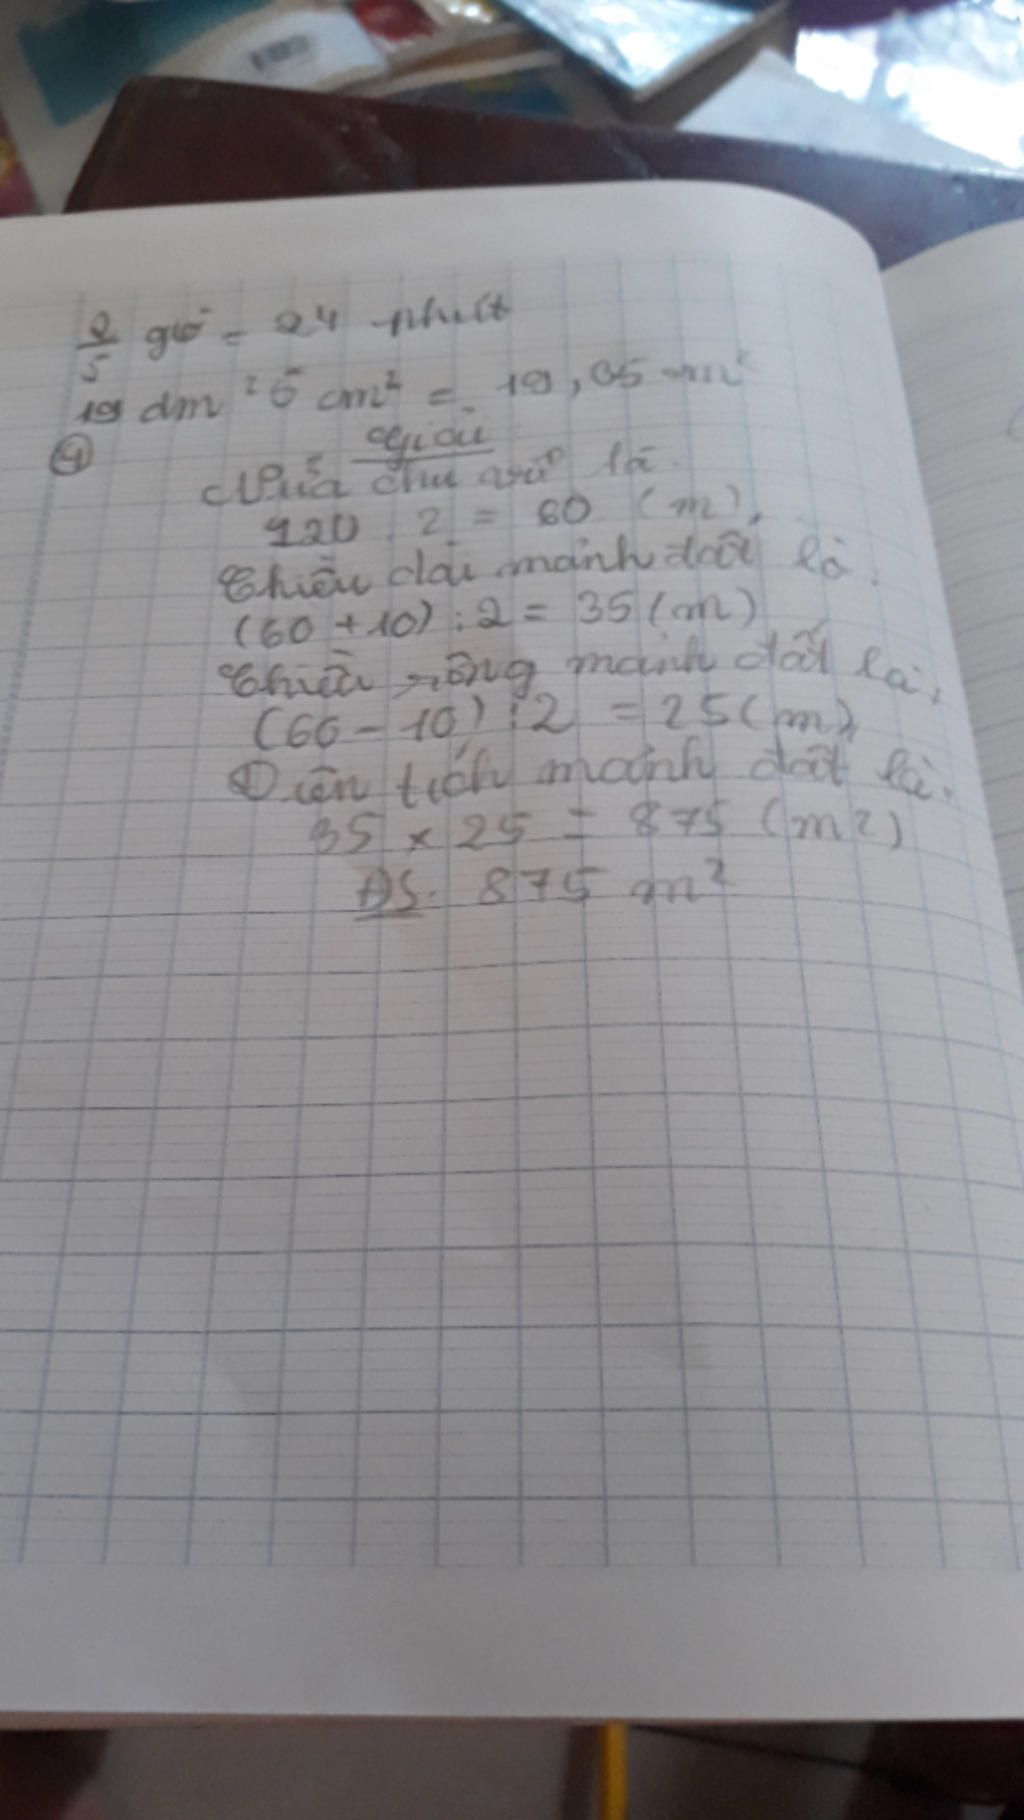 2/5 giờ = 24 phút
19 dm² 5 cm² = 19,05 m²
④ Giải
Nửa chu vi là.
120 : 2 = 60 (m).
Chiều dài mảnh đất là.
(60 + 10) : 2 = 35 (m)
Chiều rộng mảnh đất là.
(60 - 10) : 2 = 25 (m)
Diện tích mảnh đất là.
35 × 25 = 875 (m2)
ĐS. 875 m²